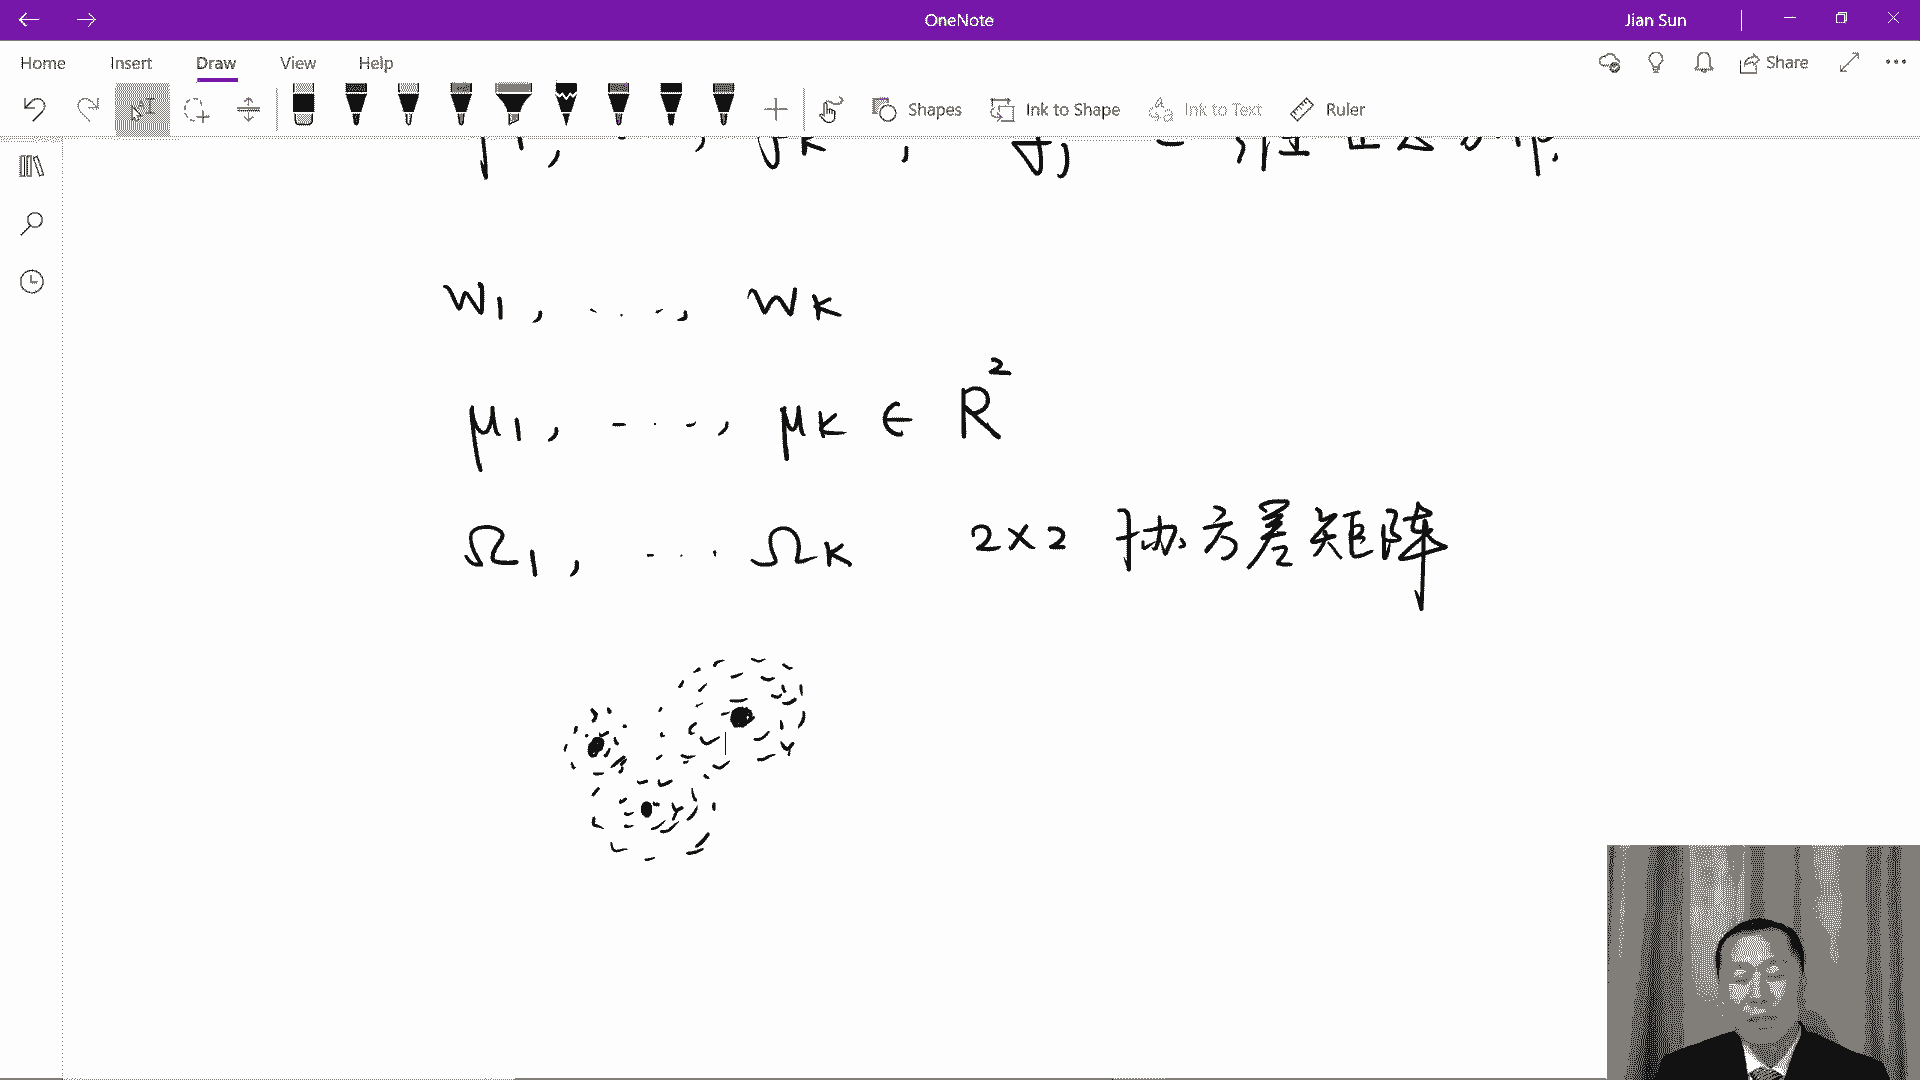 OneNote
Jian Sun
Home Insert Draw View Help
Share
Shapes Ink to Shape Ink to Text Ruler
w1, ...., wK
2
μ1, ...., μK ∈ R
Ω1, ... ΩK 2×2 协方差矩阵